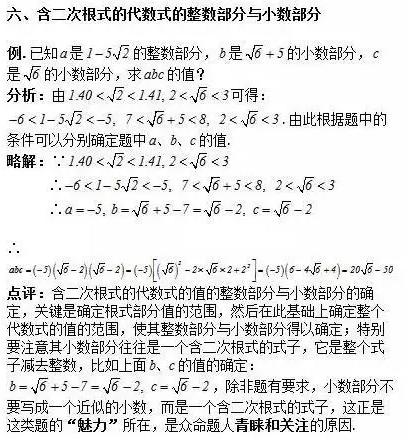 六、含二次根式的代数式的整数部分与小数部分
例.已知a是1-5√2的整数部分，b是√6+5的小数部分，c
是√6的小数部分，求abc的值？
分析：由1.40<√2<1.41, 2<√6<3可得：
-6<1-5√2<-5, 7<√6+5<8, 2<√6<3.由此根据题中的
条件可以分别确定题中a、b、c的值.
略解：∵1.40<√2<1.41, 2<√6<3
∴-6<1-5√2<-5, 7<√6+5<8, 2<√6<3
∴a=-5, b=√6+5-7=√6-2, c=√6-2
∴
abc=(-5)(√6-2)(√6-2)=(-5)[(√6)²-2×√6×2+2²]=(-5)(6-4√6+4)=20√6-50
点评：含二次根式的代数式的值的整数部分与小数部分的确
定，关键是确定根式部分值的范围，然后在此基础上确定整个
代数式的值的范围，使其整数部分与小数部分得以确定；特别
要注意其小数部分往往是一个含二次根式的式子，它是整个式
子减去整数，比如上面b、c的值的确定：
b=√6+5-7=√6-2, c=√6-2，除非题有要求，小数部分不
要写成一个近似的小数，而是一个含二次根式的式子，这正是
这类题的“魅力”所在，是众命题人青睐和关注的原因.